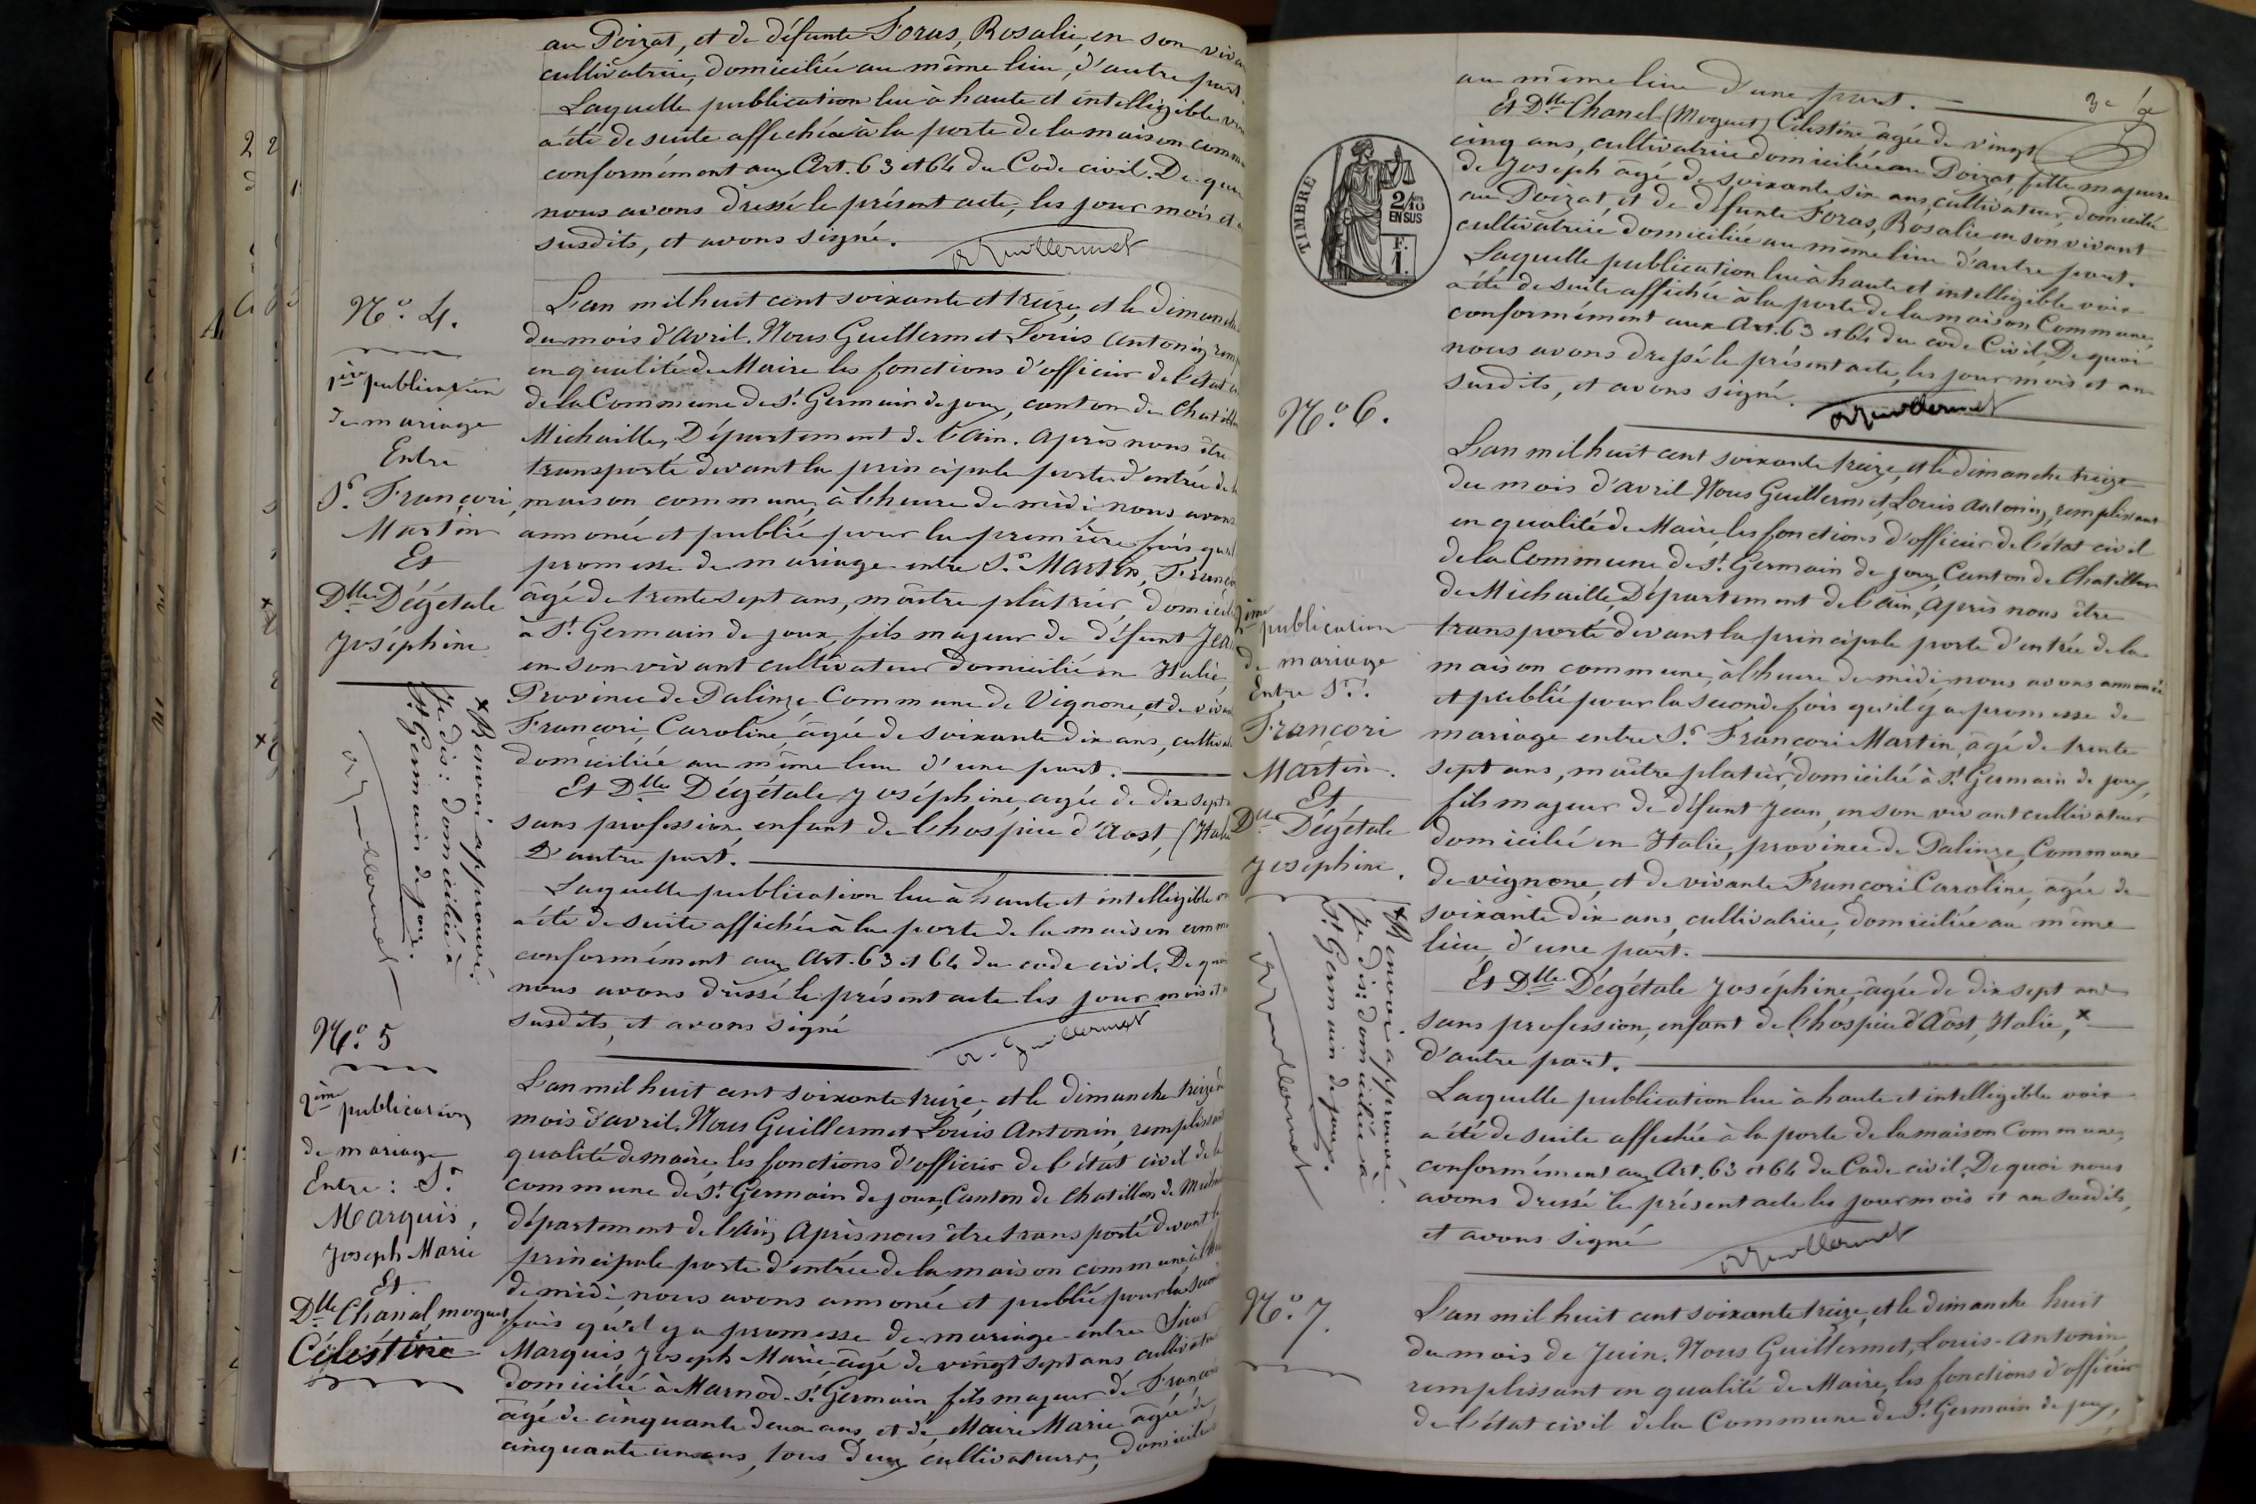 au Poizat, et de défunte Foras, Rosalie, en son
cultivatrice, domiciliée au même lieu, d'autre part.
Laquelle publication lue à haute et intelligible
a été de suite affichée à la porte de la maison
conformément aux Art. 63 et 64 du Code civil. De
nous avons dressé le présent acte, les jour mois et
susdits, et avons signé.
Guillermet
N.o 4.
1ère publication
de mariage
Entre
Sr. Françori,
Martin
Et
Dlle Dégétale
Joséphine
L'an mil huit cent soixante et treize, et le
du mois d'Avril. Nous Guillermet Louis Antonin,
en qualité de Maire les fonctions d'officier de l'état
de la Commune de St Germain de joux, canton de
Michaille, Département de l'Ain. Après nous être
transporté devant la principale porte d'entrée de
maison commune, à l'heure de midi nous avons
annonée et publié pour la première fois
promesse de mariage entre Sr. Martin,
âgé de trente sept ans, maître plâtrier
à St Germain de joux, fils majeur de défunt
en son vivant cultivateur domicilié en Italie
Province de Palinze Commune de Vignone, et de
Françori, Caroline âgée de soixante dix ans,
domiciliée au même lieu d'une part.
Et Dlle Dégétale Joséphine, agée de dix sept
sans profession, enfant de l'hospice d'Aost,
D'autre part.
Laquelle publication lue à haute et intelligible
a été de suite affichée à la porte de la maison
conformément aux Art. 63 et 64 du code civil. De
nous avons dressé le présent acte les jour mois
susdits, et avons signé
Guillermet
x Renvoi approuvé.
Je dis: domiciliée à
St. Germain de joux.
Guillermet
N.o 5
2ème publication
de mariage
Entre : Sr.
Marquis,
Joseph Marie
Et
Dlle Chanal, moguet
Célestine
L'an mil huit cent soixante treize et le dimanche treize
mois d'avril. Nous Guillermet Louis Antonin,
qualité de maire les fonctions d'officier de l'état civil de
commune de St Germain de joux, Canton de Chatillon de
département de l'Ain, Après nous être transporté devant
principale porte d'entrée de la maison commune
de midi nous avons annonée et publié pour la
fois qu'il y a promesse de mariage entre
Marquis Joseph Marie âgé de vingt sept ans
domicilié à Marnod St Germain, fils majeur de
âgé de cinquante deux ans, et de Maire Marie âgée de
cinquante un ans, tous deux cultivateurs,
au même lieu d'une part.
Et Dlle Chanel (Moguet) Célestine âgée de vingt
cinq ans, cultivatrice domiciliée au Poizat, fille majeure
de Joseph âgé de soixante six ans, cultivateur, domicilié
au Poizat, et de défunte Foras, Rosalie en son vivant
cultivatrice domiciliée au même lieu d'autre part.
Laquelle publication lue à haute et intelligible voix
a été de suite affichée à la porte de la maison Commune,
conformément aux Art. 63 et 64 du code Civil. De quoi
nous avons dressé le présent acte, les jour mois et an
susdits, et avons signé.
Guillermet
TIMBRE
2/10
EN SUS
F.
1.
N.o 6.
2ème publication
de mariage
Entre Sr.
Françori
Martin.
Et
Dlle Dégétale
Joséphine.
L'an mil huit cent soixante treize, et le dimanche treize
du mois d'avril Nous Guillermet, Louis Antonin, remplissant
en qualité de Maire, les fonctions d'officier de l'état civil
de la Commune de St. Germain de joux, Canton de Chatillon
de Michaille, Département de l'Ain, Après nous être
transporté devant la principale porte d'entrée de la
maison commune, à l'heure de midi, nous avons annoncé
et publié pour la seconde fois qu'il y a promesse de
mariage entre Sr. Françori Martin, âgé de trente
sept ans, maître platrier, domicilié à St Germain de joux,
fils majeur de défunt Jean, en son vivant cultivateur
domicilié en Italie, province de Palinze, Commune
de vignone, et de vivante Françori Caroline, âgée de
soixante dix ans, cultivatrice, domiciliée au même
lieu, d'une part.
Et Dlle Dégétale Joséphine, âgée de dix sept ans
sans profession, enfant de l'hospice d'Aost, Italie, x
d'autre part.
Laquelle publication lue à haute et intelligible voix
a été de suite affichée à la porte de la maison commune,
conformément aux Art. 63 et 64 du Code civil. De quoi nous
avons dressé le présent acte les jour mois et an susdits,
et avons signé
Guillermet
x Renvoi approuvé.
Je dis: domiciliée à
St. Germain de joux.
Guillermet
N.o 7.
L'an mil huit cent soixante treize, et le dimanche huit
du mois de Juin. Nous Guillermet, Louis-Antonin
remplissant en qualité de Maire, les fonctions d'officier
de l'état civil de la Commune de St. Germain de joux,